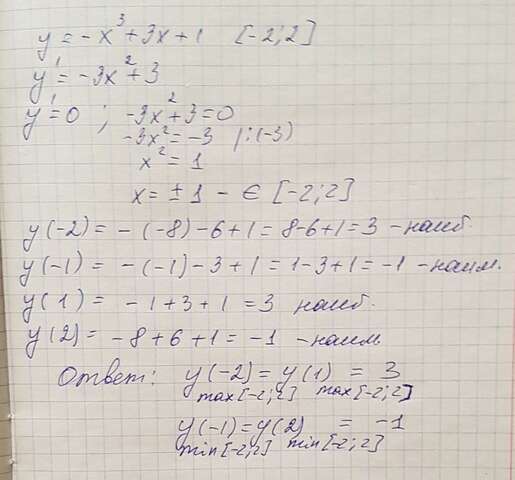 y = -x³ + 3x + 1 [-2; 2]
y' = -3x² + 3
y' = 0 ; -3x² + 3 = 0
-3x² = -3 |:(-3)
x² = 1
x = ± 1 - ∈ [-2; 2]
y(-2) = -(-8) - 6 + 1 = 8 - 6 + 1 = 3 - наиб.
y(-1) = -(-1) - 3 + 1 = 1 - 3 + 1 = -1 - наим.
y(1) = -1 + 3 + 1 = 3 наиб.
y(2) = -8 + 6 + 1 = -1 - наим
Ответ: y(-2) = y(1) = 3
max[-2; 2] max[-2; 2]
y(-1) = y(2) = -1
min[-2; 2] min[-2; 2]